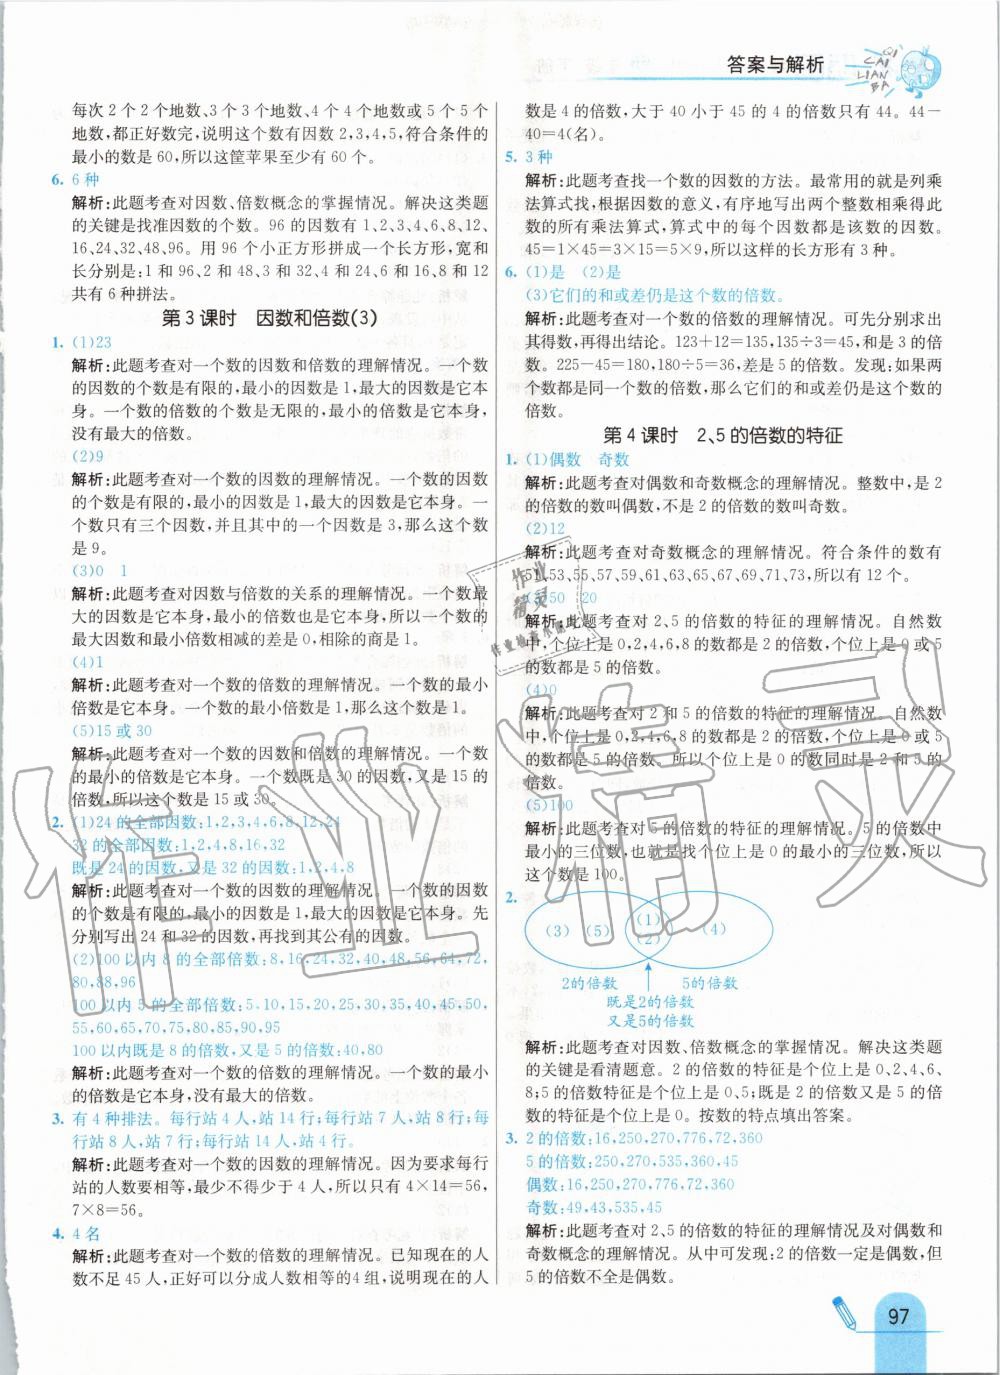 答案与解析
QI CAI LIAN BA
每次2个2个地数、3个3个地数、4个4个地数或5个5个
地数,都正好数完,说明这个数有因数2,3,4,5,符合条件的
最小的数是60,所以这筐苹果至少有60个。
6. 6种
解析:此题考查对因数、倍数概念的掌握情况。解决这类题
的关键是找准因数的个数。96的因数有1,2,3,4,6,8,12,
16,24,32,48,96。用96个小正方形拼成一个长方形,宽和
长分别是:1和96、2和48、3和32、4和24、6和16、8和12
共有6种拼法。
第3课时 因数和倍数(3)
1. (1)23
解析:此题考查对一个数的因数和倍数的理解情况。一个数
的因数的个数是有限的,最小的因数是1,最大的因数是它本
身。一个数的倍数的个数是无限的,最小的倍数是它本身,
没有最大的倍数。
(2)9
解析:此题考查对一个数的因数的理解情况。一个数的因数
的个数是有限的,最小的因数是1,最大的因数是它本身。一
个数只有三个因数,并且其中的一个因数是3,那么这个数
是9。
(3)0 1
解析:此题考查对因数与倍数的关系的理解情况。一个数最
大的因数是它本身,最小的倍数也是它本身,所以一个数的
最大因数和最小倍数相减的差是0,相除的商是1。
(4)1
解析:此题考查对一个数的倍数的理解情况。一个数的最小
倍数是它本身。一个数的最小倍数是1,这个数就是1。
(5)15或30
解析:此题考查对一个数的因数和倍数的理解情况。一个数
的最小的倍数是它本身。一个数既是30的因数,又是15的
倍数,所以这个数是15或30。
2. (1)24的全部因数:1,2,3,4,6,8,12,24
32的全部因数:1,2,4,8,16,32
既是24的因数,又是32的因数:1,2,4,8
解析:此题考查对一个数的因数的理解情况。一个数的因数
的个数是有限的,最小的因数是1,最大的因数是它本身。先
分别写出24和32的因数,再找到其公有的因数。
(2)100以内8的全部倍数:8,16,24,32,40,48,56,64,72,
80,88,96
100以内5的全部倍数:5,10,15,20,25,30,35,40,45,50,
55,60,65,70,75,80,85,90,95
100以内既是8的倍数,又是5的倍数:40,80
解析:此题考查对一个数的倍数的理解情况。一个数的最小
的倍数是它本身,没有最大的倍数。
3. 有4种排法。每行站4人,站14行;每行站7人,站8行;每
行站8人,站7行;每行站14人,站4行。
解析:此题考查对一个数的因数的理解情况。因为要求每行
站的人数要相等,最少不得少于4人,所以只有4×14=56,
7×8=56。
4. 4名
解析:此题考查对一个数的倍数的理解情况。已知现在的人
数不足45人,正好可以分成人数相等的4组,说明现在的人
数是4的倍数,大于40小于45的4的倍数只有44。44-
40=4(名)。
5. 3种
解析:此题考查找一个数的因数的方法。最常用的就是列乘
法算式找,根据因数的意义,有序地写出两个整数相乘得此
数的所有乘法算式,算式中的每个因数都是该数的因数。
45=1×45=3×15=5×9,所以这样的长方形有3种。
6. (1)是 (2)是
(3)它们的和或差仍是这个数的倍数。
解析:此题考查对一个数的倍数的理解情况。可先分别求出
其得数,再得出结论。123+12=135,135÷3=45,和是3的倍
数。225-45=180,180÷5=36,差是5的倍数。发现:如果两
个数都是同一个数的倍数,那么它们的和或差仍是这个数的
倍数。
第4课时 2、5的倍数的特征
1. (1)偶数 奇数
解析:此题考查对偶数和奇数概念的理解情况。整数中,是2
的倍数的数叫偶数,不是2的倍数的数叫奇数。
(2)12
解析:此题考查对奇数概念的理解情况。符合条件的数有
51,53,55,57,59,61,63,65,67,69,71,73,所以有12个。
(3)50 20
解析:此题考查对2、5的倍数的特征的理解情况。自然数
中,个位上是0,2,4,6,8的数都是2的倍数,个位上是0或5
的数都是5的倍数。
(4)0
解析:此题考查对2和5的倍数的特征的理解情况。自然数
中,个位上是0,2,4,6,8的数都是2的倍数,个位上是0或5
的数都是5的倍数。所以个位上是0的数同时是2和5的
倍数。
(5)100
解析:此题考查对5的倍数的特征的理解情况。5的倍数中
最小的三位数,也就是找个位上是0的最小的三位数,所以
这个数是100。
2.
(3) (5) (1) (2) (4)
2的倍数 5的倍数
既是2的倍数
又是5的倍数
解析:此题考查对因数、倍数概念的掌握情况。解决这类题
的关键是看清题意。2的倍数特征是个位上是0、2、4、6、
8;5的倍数特征是个位上是0、5;既是2的倍数又是5的倍
数的特征是个位上是0。按数的特点填出答案。
3. 2的倍数:16,250,270,776,72,360
5的倍数:250,270,535,360,45
偶数:16,250,270,776,72,360
奇数:49,43,535,45
解析:此题考查对2、5的倍数的特征的理解情况及对偶数和
奇数概念的理解情况。从中可发现:2的倍数一定是偶数,但
5的倍数不全是偶数。
97
作业精灵